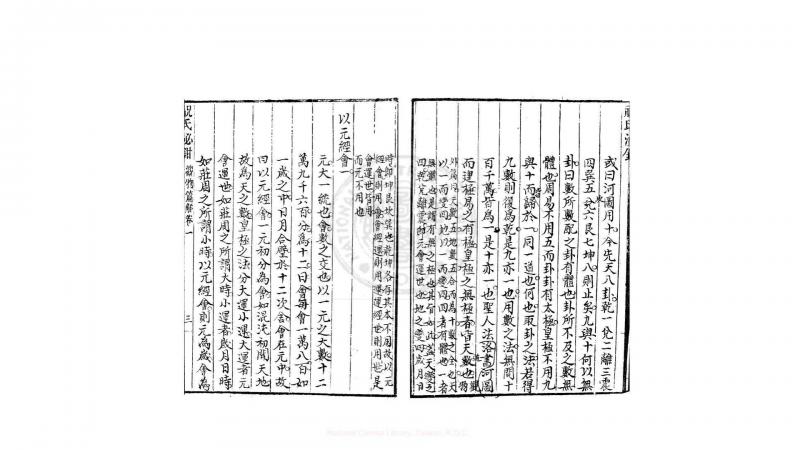 或曰河圖用十今先天八卦乾一兊二離三震
四巽五坎六艮七坤八則止矣九與十何以無
卦曰數所數配之卦有體也卦所不及之數無
體也周易不用五而卦卦有太極皇極不用九
與十而歸於一同一道也何也取卦之法若得
九數則復為乾是九亦一也用數之法無間十
百千萬皆為一是十亦一也聖人法洛書河圖
而建極易之有極皇極之無極者皆天數也
時即坤艮坎巽也乾坤各存其本不用故以元
會運世皆用
而元不用也
以元經會一
元大一統也會數之交也以一元之大數十二
萬九千六百分為十二曰會每會一萬八百如
一歲之中日月合璧於十二次舍會在元中故
曰以元經會一元初分為會如混沌初開天地
故為天之數皇極之法分大運小運大運者元
會運世如莊周之所謂大時小運者歲月日時
如莊周之所謂小時以元經會則元為歲會為
祝氏泌鉗 觀物篇解卷一 三
National Central Library, Taiwan, R.O.C.